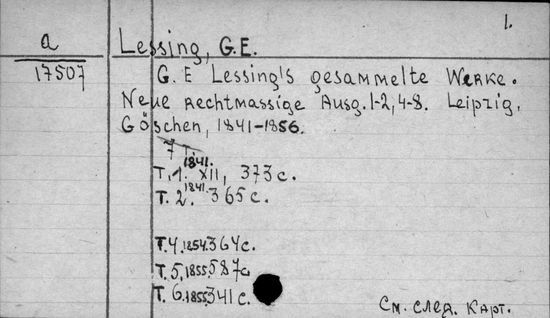 1.
a Lessing, G.E.
17507 G. E Lessing's gesammelte Werke.
Neue rechtmassige Ausg. 1-2, 4-8. Leipzig,
Göschen, 1841-1856.
7 т.
Т. 1. 1841. XII, 373 с.
Т. 2. 1841. 365 с.
Т. 4. 1854. 364 с.
Т. 5. 1855. 587 с
Т. 6. 1855. 341 с.
См. след. карт.